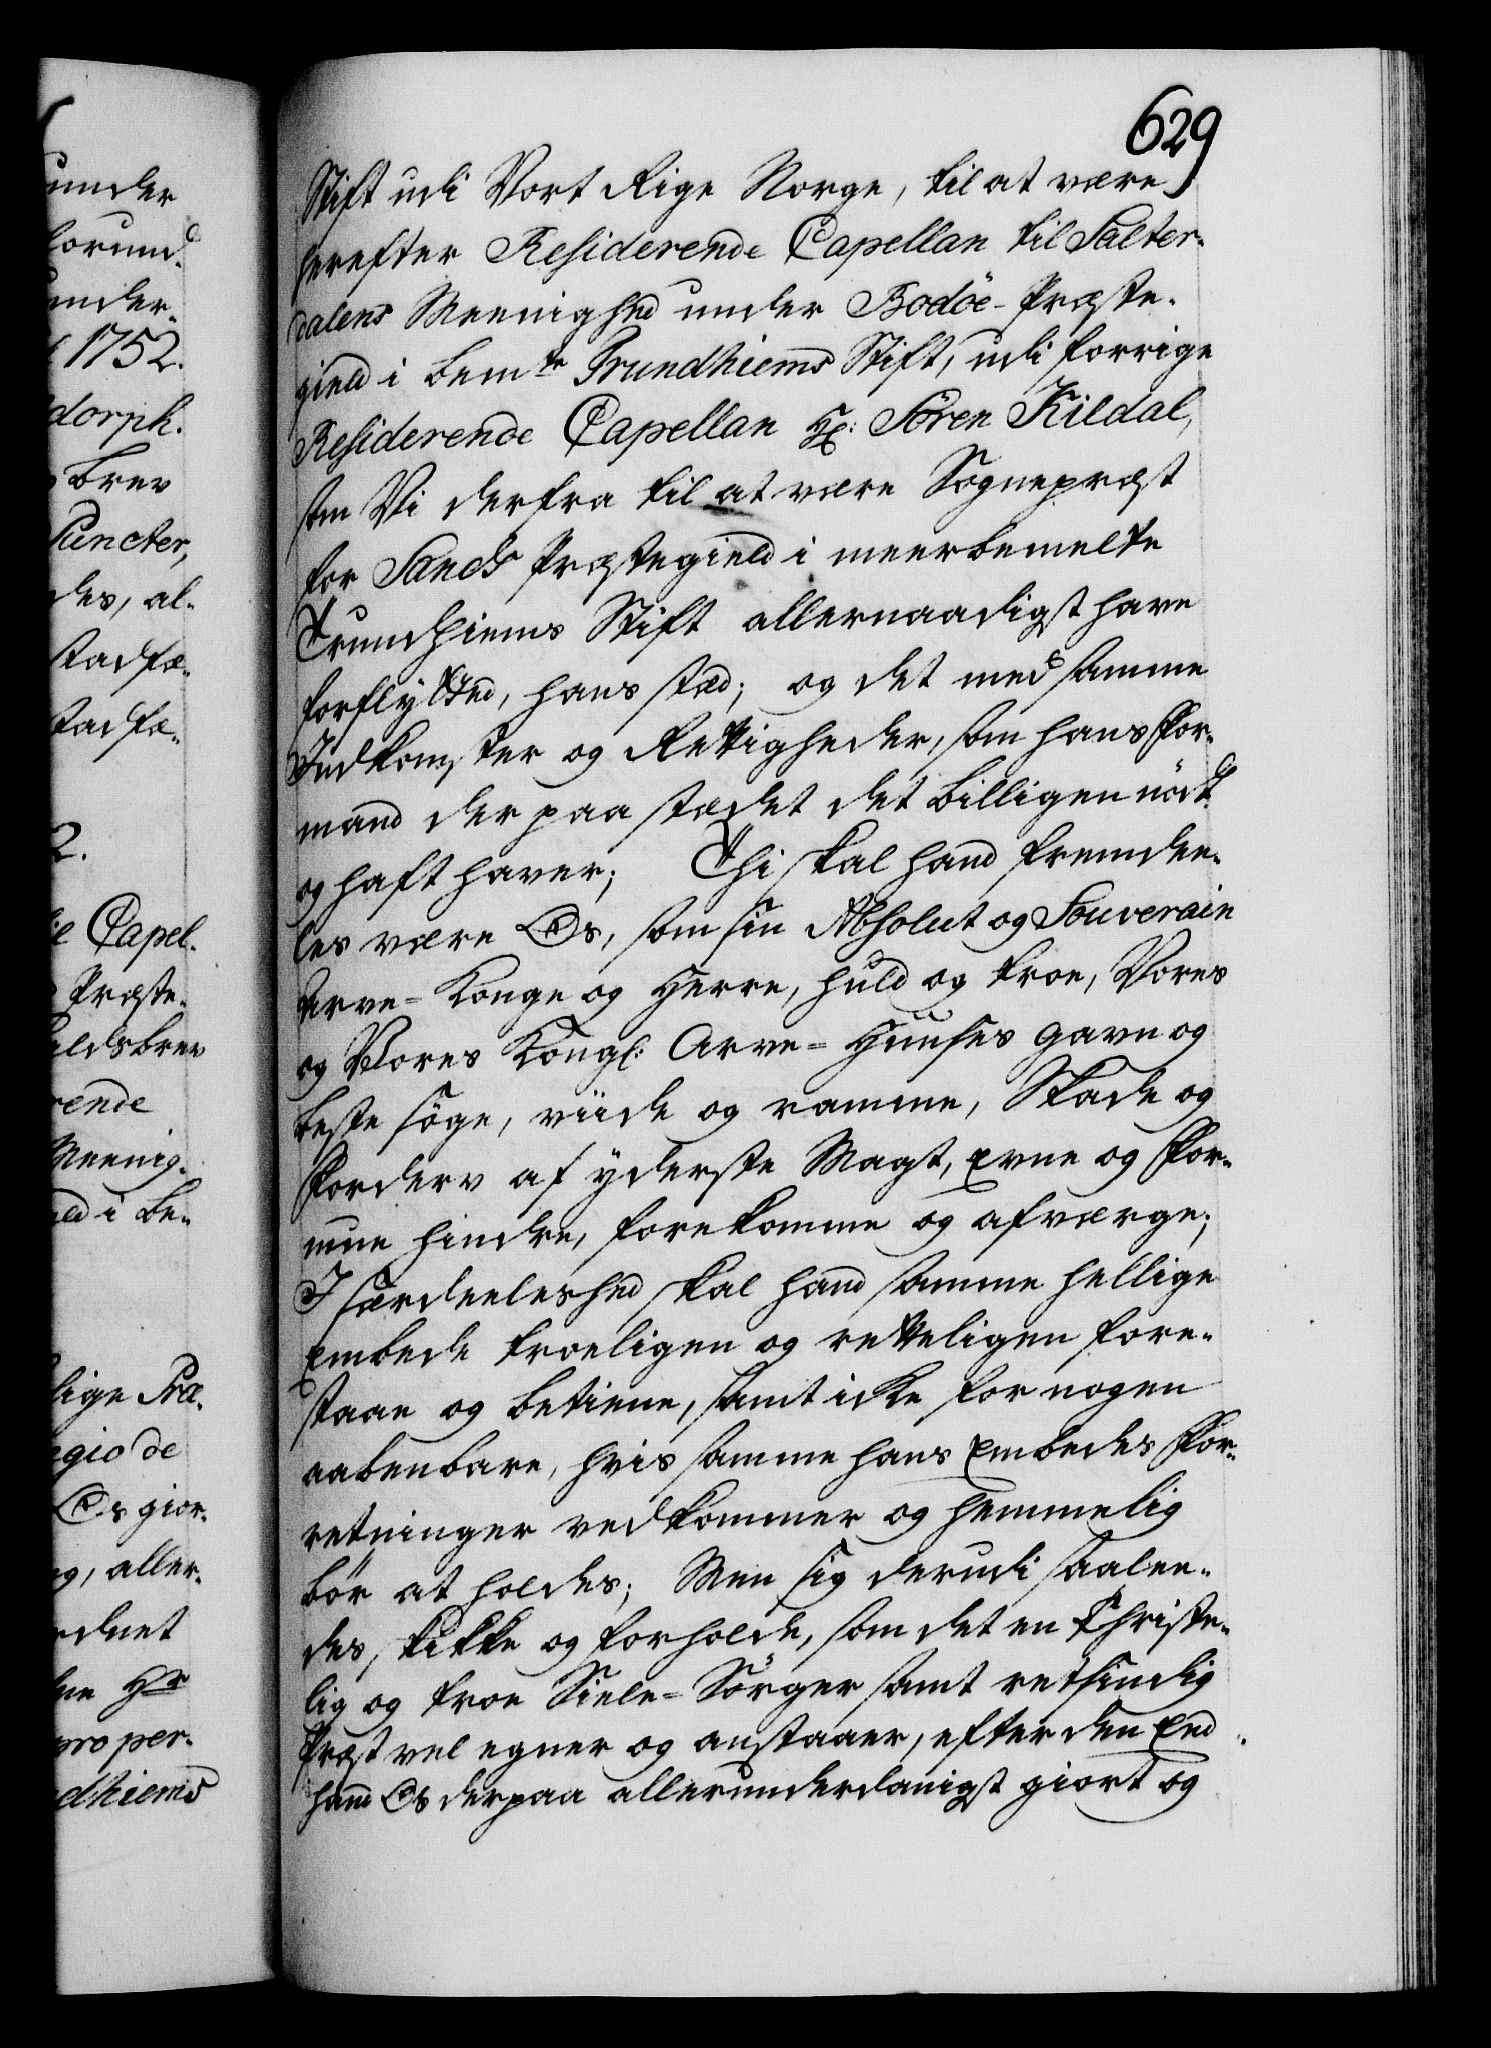 629
Stift udi Vort Rige Norge, til at være
herefter Residerende Capellan til Salter-
dalens Meenighed under Bodöe-Præste-
gield i bemte Trundhiems Stift, udi forrige
Residerende Capellan Hr: Sören Kildal,
som Vi derfra til at være Sognepræst
for Sands Præstegield i meerbemelte
Trundhiems Stift allernaadigst have
forflyttet, hans stæd; og det med samme
Indkomster og Rettigheder, som hans For-
mand der paa stædet det billigen nödt
og haft haver; Thi skal hand fremdee-
les være Os, som sin Absolut og Souverain
Arve-Konge og Herre, huld og troe, Vores
og Vores Kongl: Arve-Huuses gavn og
beste söge, viide og ramme, Skade og
Forderv af yderste Magt, Evne og For-
mue hindre, forekomme og afværge;
I særdeeleshed skal hand samme hellige
Embede troeligen og retteligen fore-
staae og betiene, samt icke for nogen
aabenbare, hvis samme hans Embedes For-
retninger vedkommer og hemmelig
bör at holdes; Men sig derudi saalee-
des skikke og forholde, som det en Christe-
lig og troe Siele-Sörger samt retsindig
Præst vel egner og anstaaer, efter den Eed
hand Os derpaa allerunderdanigst giort og
under
forund
under-
1752.
dorph.
brev
Puncter,
des, al-
stadfæ-
stadfæ-
2.
Capel-
Præste-
aldsbrev
rende
Meenig-
eld i be-
lige Præ-
egio de
Os gior-
og, aller-
rdnet
Hr
pro per-
dhiems